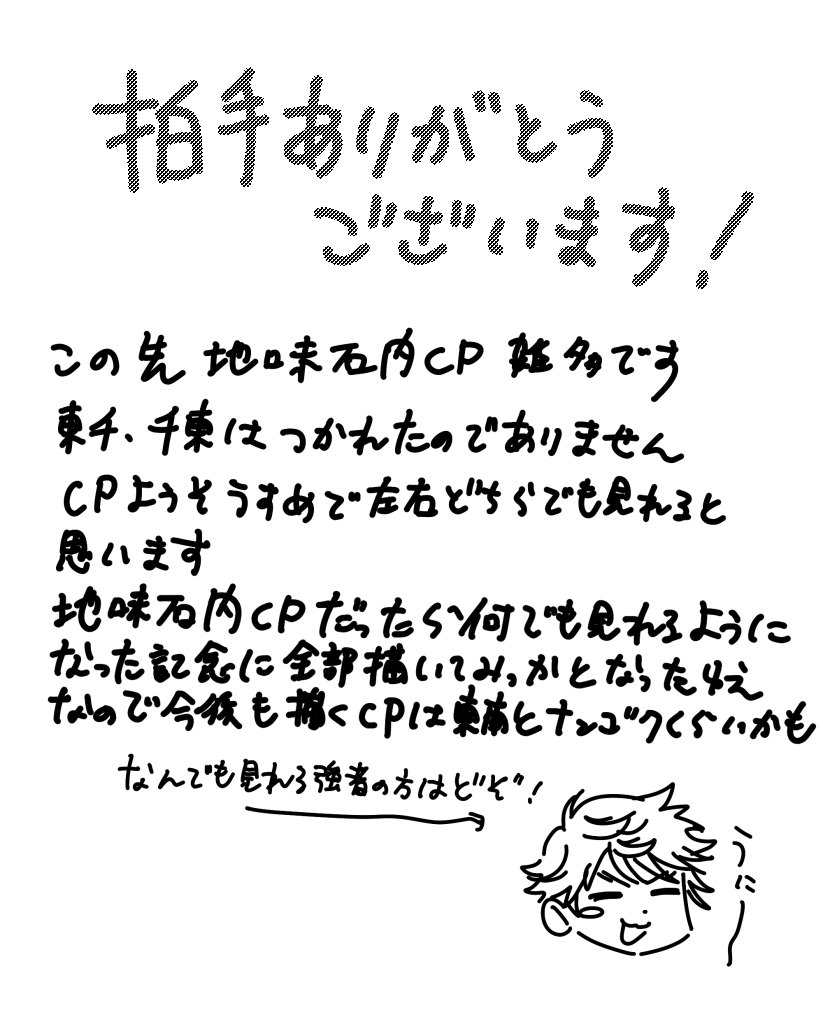 拍手ありがとう
ございます!
この先 地味石内CP 雑多です
東チ、千東はつかれたのでありません
CPようそうすめで左右どちらでも見れると
思います
地味石内CPだったら何でも見れるように
なった記念に全部描いてみっかとなった4え
なので今後も描くCPは東南とナンゴクくらいかも
なんでも見れる強者の方はどぞ!
うに〜